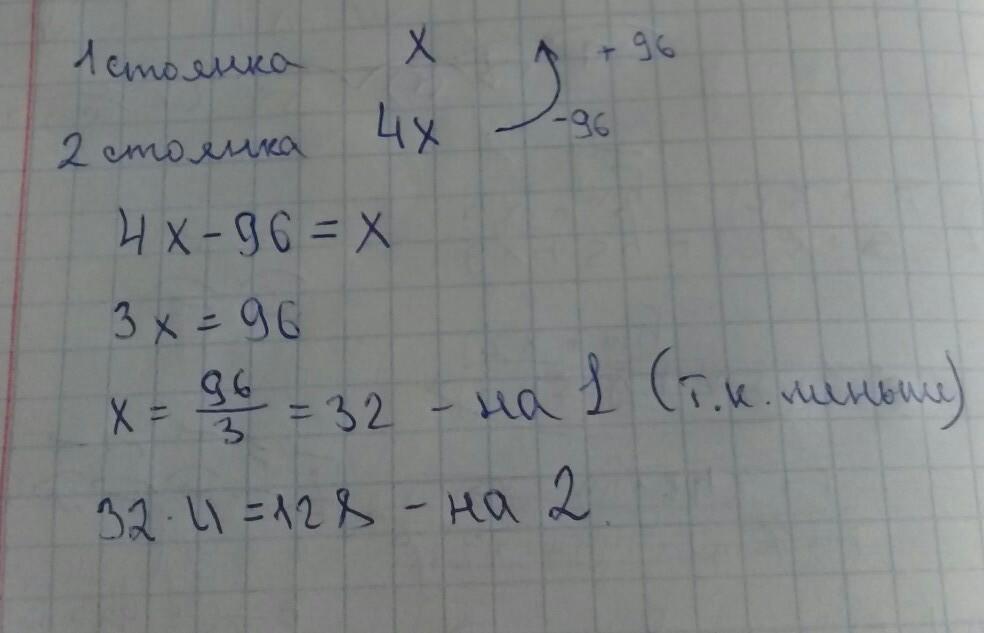 1 стоянка x + 96
2 стоянка 4x -96
4x - 96 = x
3x = 96
x = 96/3 = 32 - на 1 (т.к. меньше)
32 · 4 = 128 - на 2.